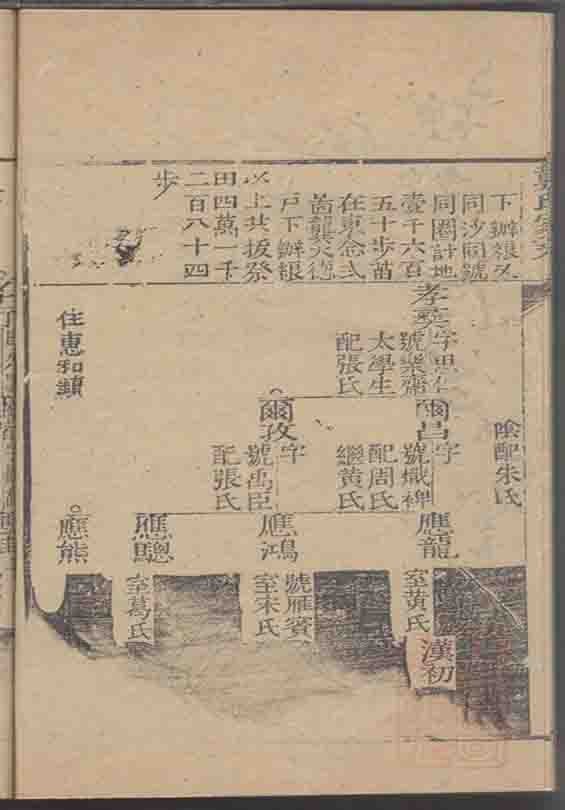 下辦銀又
同沙同號
同圈計地
壹千六百
五十步苗
在東念弍
啚龔大德
戶下辦銀
以上共拔祭
田四萬一千
二百八十四
步
陰配朱氏
孝奕字思仁
號樂齋
太學生
配張氏
爾昌字
號熾裨
配周氏
繼黃氏
爾孜字
號禹臣
配張氏
應龍
室黃氏
漢初
應鴻
號雁賓
室宋氏
應聰
室葛氏
應熊
住惠和鎮